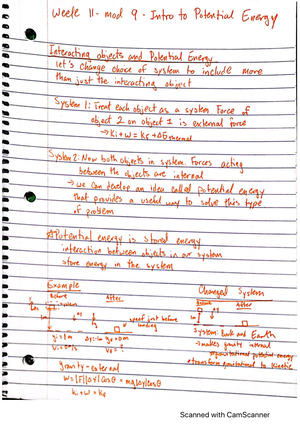 Week 11 - mod 9 - Intro to Potential Energy
Interacting objects and Potential Energy
let's change choice of system to include more
than just the interacting object
System 1: Treat each object as a system Force of
object 2 on object 1 is external force
→ Ki + W = Kf + ΔEthermal
System 2: Now both objects in system. Forces acting
between the objects are internal
→ we can develop an idea called potential energy
that provides a useful way to solve this type
of problem
Potential energy is stored energy
interaction between objects in our system
store energy in the system
Example
Changed System
Before
After
Before
After
system
1m
just before
landing
yi = 1m
yf = 0m
vi = 0m/s
vf = ?
System: Ball and Earth
→ makes gravity internal
gravitational potential energy
transform gravitational to kinetic
gravity = external
W = |F||Δy|cosθ = mg|Δy|cosθ
Ki + W = Kf
Scanned with CamScanner